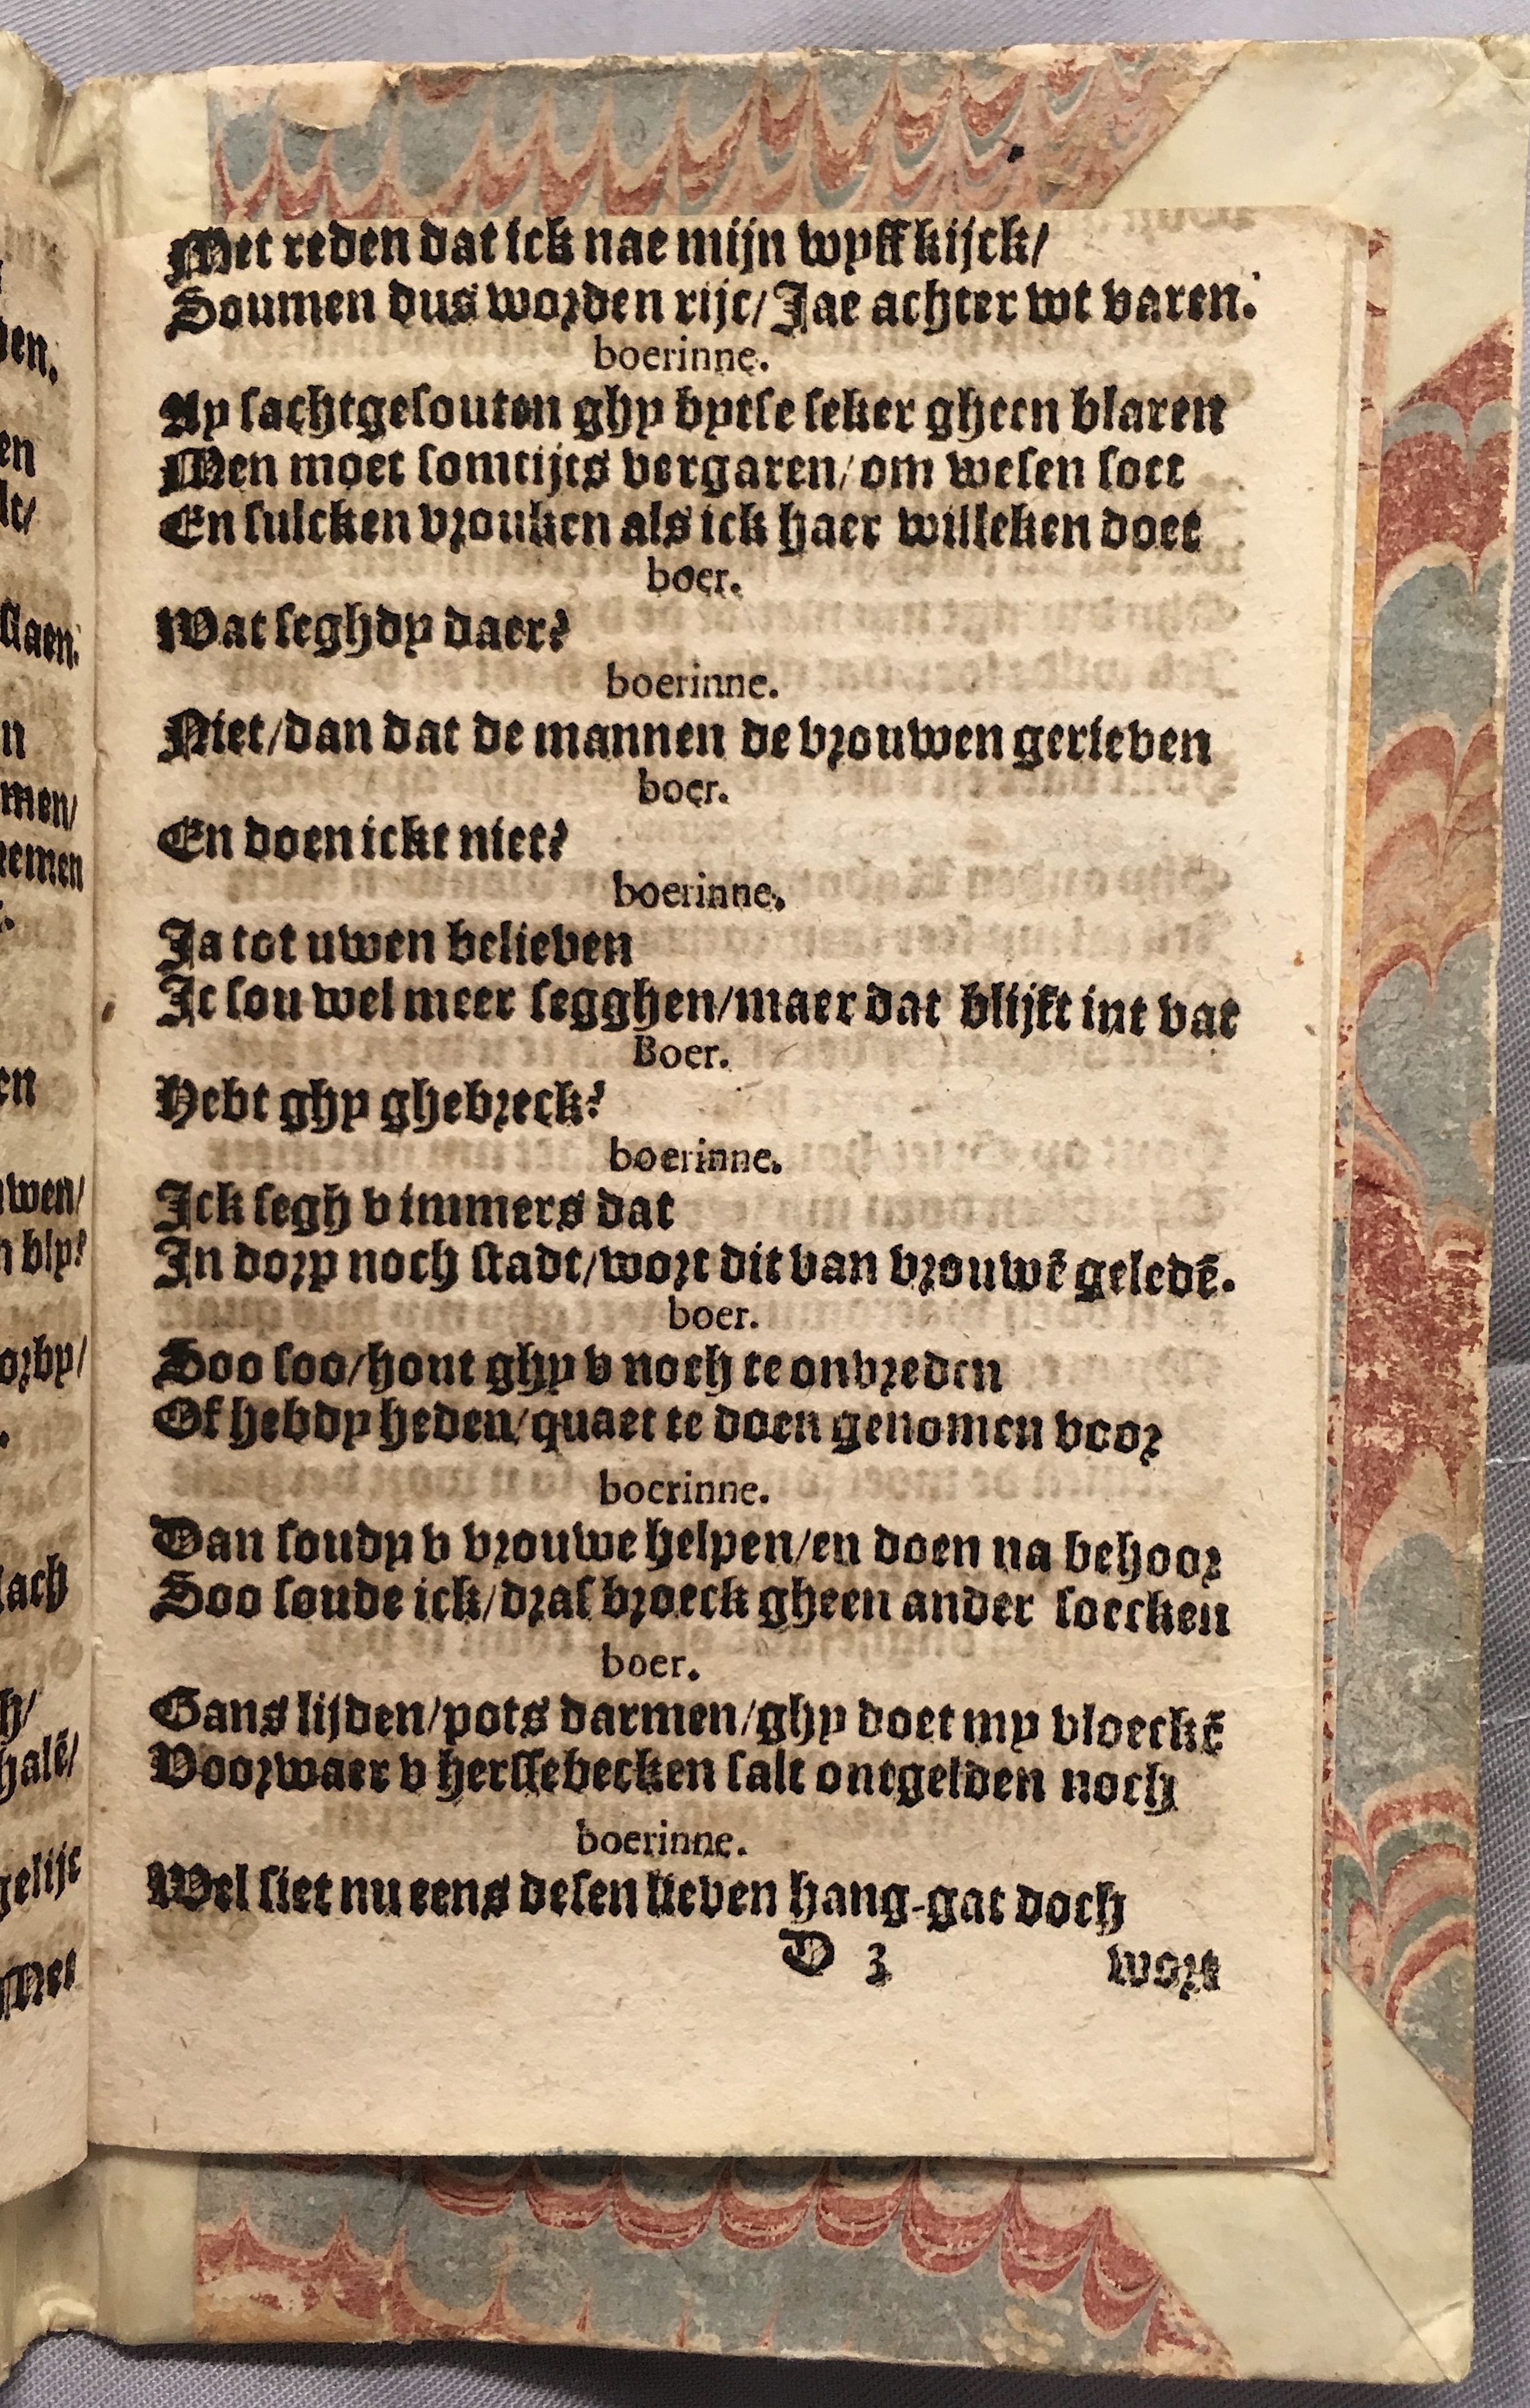 Met reden dat ick nae mijn wyff kijck/
Soumen dus worden rijc/ Jae achter wt varen.
boerinne.
Ay sachtgesouten ghy bytse seker gheen blaren
Men moet somtijts vergaren/ om wesen soet
En sulcken vrouken als ick haer willeken doet
boer.
Wat seghdy daer?
boerinne.
Niet/dan dat de mannen de vrouwen gerieven
boer.
En doen ickt niet?
boerinne.
Ja tot uwen believen
Jc sou wel meer segghen/maer dat blijft int vat
Boer.
Hebt ghy ghebreck?
boerinne.
Jck segh v immers dat
Jn dorp noch stadt/wort dit van vrouwē geledē.
boer.
Soo soo/hout ghy v noch te onvreden
Of hebdy heden/quaet te doen genomen voor
boerinne.
Dan soudy v vrouwe helpen/en doen na behoor
Soo soude ick/dras broeck gheen ander soecken
boer.
Gans lijden/pots darmen/ghy doet my vloeckē
Voorwaer v herssebecken salt ontgelden noch
boerinne.
Wel siet nu eens desen lieven hang-gat doch
D 3
wort